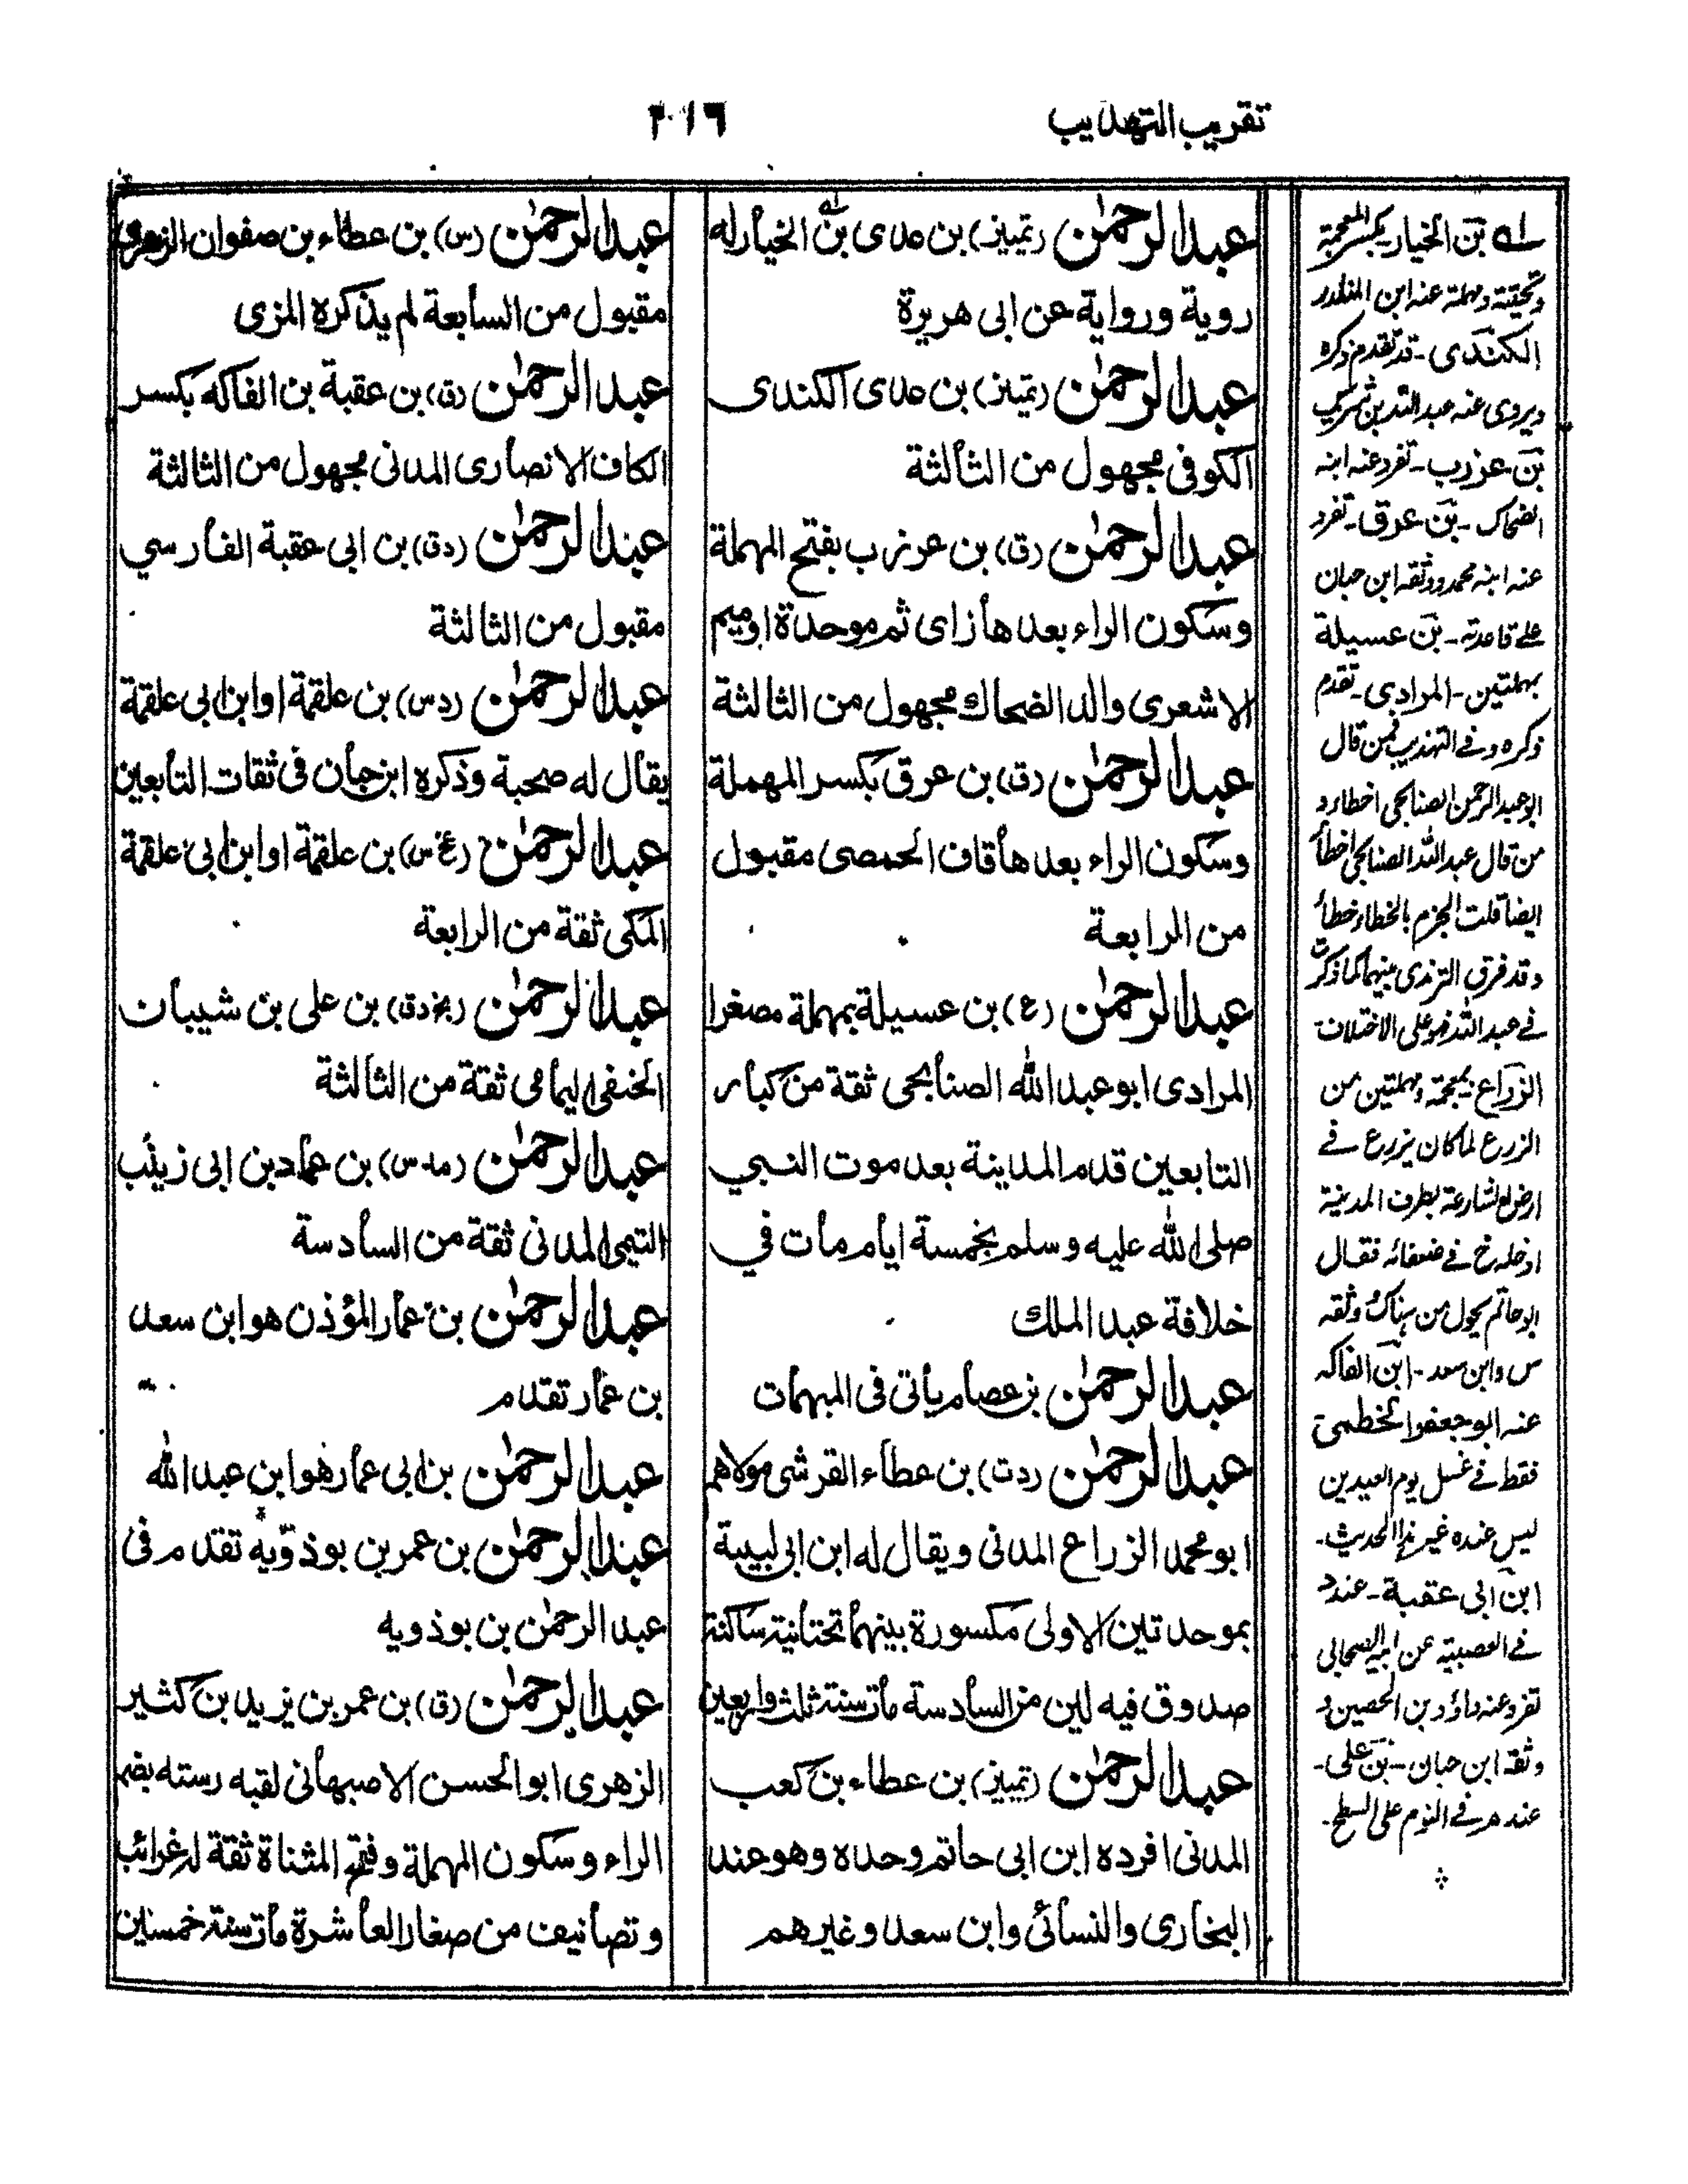 تقريب التهذيب
٢١٦
عبدالرحمٰن (تمييز) بن عدى بن الخيار له
روية ورواية عن ابى هريرة
عبدالرحمٰن (تميز) بن عدى الكندى
الكوفى مجهول من الثالثة
عبدالرحمٰن (ق) بن عرزب بفتح المهملة
وسكون الراء بعدها زاى ثم موحدة اوميم
الاشعرى والد الضحاك مجهول من الثالثة
عبدالرحمٰن (ق) بن عرق بكسر المهملة
وسكون الراء بعدها قاف الحمصى مقبول
من الرابعة
عبدالرحمٰن (ع) بن عسيلة بمهملة مصغرا
المرادى ابو عبدالله الصنابحى ثقة من كبار
التابعين قدم المدينة بعد موت النبي
صلى الله عليه وسلم بخمسة ايام مات في
خلافة عبد الملك
عبدالرحمٰن بن عصام يأتى فى المبهمات
عبدالرحمٰن (دت) بن عطاء القرشى مولاهم
ابو محمد الزراع المدنى ويقال له ابن ابى لبيبة
بموحدتين الاولى مكسورة بينهما تحتانية ساكنة
صدوق فيه لين من السادسة مات سنة ثلث واربعين
عبدالرحمٰن (تمييز) بن عطاء بن كعب
المدنى افرده ابن ابى حاتم وحده وهو عند
البخارى والنسائى وابن سعد وغيرهم
عبدالرحمٰن (س) بن عطاء بن صفوان الزهرى
مقبول من السابعة لم يذكره المزى
عبدالرحمٰن (ق) بن عقبة بن الفاكه بكسر
الكاف الانصارى المدنى مجهول من الثالثة
عبدالرحمٰن (دق) بن ابى عقبة الفارسي
مقبول من الثالثة
عبدالرحمٰن (دس) بن علقمة او ابن ابى علقمة
يقال له صحبة وذكره ابن حبان فى ثقات التابعين
عبدالرحمٰن بن علقمة او ابن ابى علقمة
المكى ثقة من الرابعة
عبدالرحمٰن (بخ دق) بن على بن شيبان
الحنفى اليمامى ثقة من الثالثة
عبدالرحمٰن (مدس) بن عماد بن ابى زينب
التيمى المدنى ثقة من السادسة
عبدالرحمٰن بن عمار المؤذن هو ابن سعد
بن عمار تقدم
عبدالرحمٰن بن ابى عمار هو ابن عبدالله
عبدالرحمٰن بن عمر بن بوذويه تقدم فى
عبد الرحمٰن بن بوذويه
عبدالرحمٰن (ق) بن عمر بن يزيد بن كثير
الزهرى ابو الحسن الاصبهانى لقبه رسته بضم
الراء وسكون المهملة وفتح المثناة ثقة له غرائب
وتصانيف من صغار العاشرة مات سنة خمسين
له بن الخيار بكسر المعجمة
وتحتية ومهملة عنه ابن المنكدر
الكندى - قد تقدم ذكره
ويروى عنه عبد الله بن شريك
بن عزرب - تفرد عنه ابنه
الضحاك - بن عرق - تفرد
عنه ابنه محمد ووثقه ابن حبان
على قاعدته - بن عسيلة
بمهملتين - المرادى - تقدم
ذكره وفى التهذيب فمن قال
ابو عبد الرحمن الصنابحى اخطاء و
من قال عبد الله الصنابحى اخطأ
ايضا قلت الجزم بالخطاء خطأ
وقد فرق الترمذى بينهما كما ذكرت
فى عبد الله فهو على الاختلاف
الزراع بمعجمة ومهملتين من
الزرع لما كان يزرع فى
ارض بطرف المدينة
ادخله خ فى ضعفائه فقال
ابو حاتم يحول من هناك وثقه
س وابن سعد - ابن الفاكه
عنه ابو جعفر الخطمى
فقط فى غسل يوم العيدين
ليس عنده غير هذا الحديث -
ابن ابى عقبة - عند د
فى العصبية عن ابيه الصحابى
تفرد عنه داؤد بن الحصين و
وثقه ابن حبان - بن على -
عندهم فى النوم على السطح -